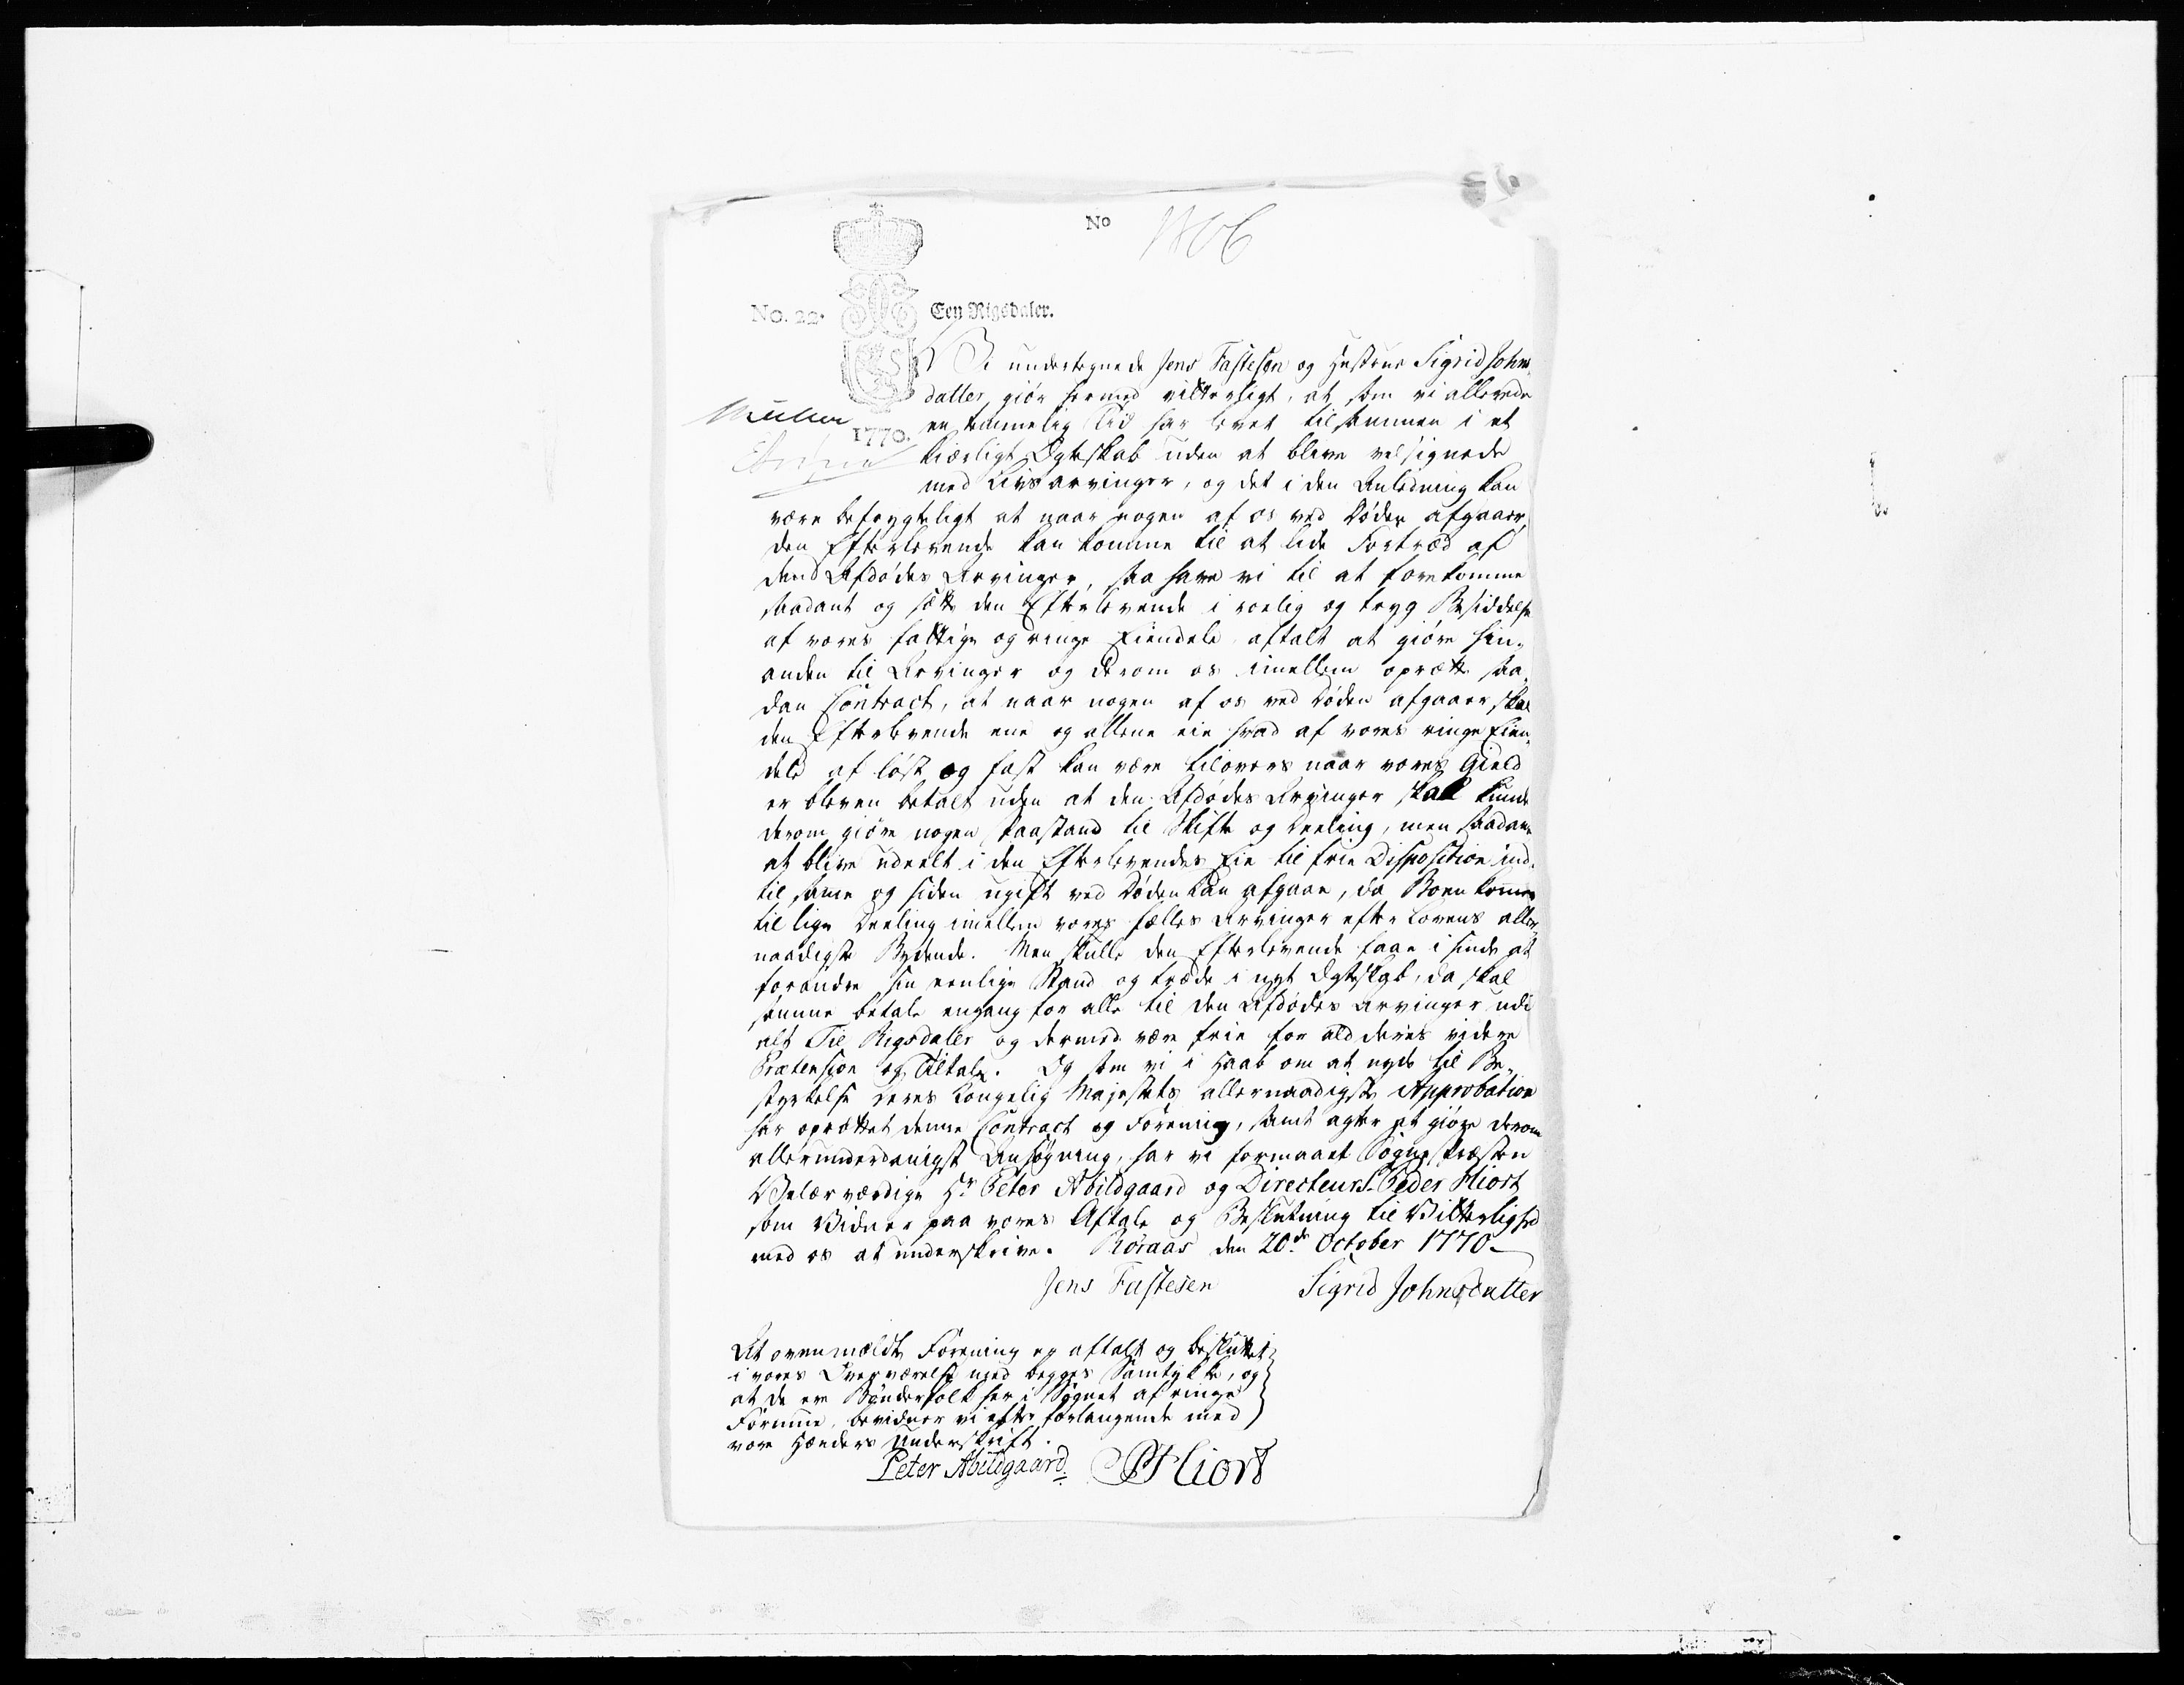 56
No 1806
No. 22. Een Rigsdaler.
Vi undertegnede Jens Fastesen og Hustrue Sigrid Johns
datter, giør hermed vitterligt, at som vi allerede
Müller
1770.
en temmelig Tid har levet tilsammen i et
kierligt Ægteskab uden at blive velsignede
med Livsarvinger, og det i den Anledning kan
være befrygteligt at naar nogen af os ved Døden afgaaer,
den Efterlevende kan komme til at lide Fortræd af
dend Afdødes Arvinger, saa have vi til at forekomme
saadant og sætte den Efterlevende i roelig og tryg Besiddelse
af vores fattige og ringe Eiendele aftalt at giøre hin-
anden til Arvinger og derom os imellem oprette saa-
dan Contract, at naar nogen af os ved Døden afgaaer skal
den Efterlevende ene og allene eie hvad af vores ringe Eien-
dele af løst og fast kan være tilovers naar vores Gield
er bleven betalt uden at den Afdødes Arvinger skal kunde
derom giøre nogen Paastand til Skifte og Deeling, men saadant
at blive udeelt i den Efterlevendes Eie til frie Disposition ind-
til samme og siden ugift ved Døden kan afgaae, da Boen kommer
til lige Deeling imellem vores fælles Arvinger efter Lovens aller-
naadigste Bydende. Men skulle den Efterlevende faae i sinde at
forandre sin eenlige Stand og træde i nyt Ægteskab, da skal
samme betale engang for alle til den Afdødes Arvinger udi
alt Tie Rigsdaler og dermed være frie for ald deres videre
Prætension og Tiltale. Og som vi i Haab om at nyde til Be-
styrkelse deres Kongelig Majestets allernaadigste Approbation
har oprettet denne Contract og Forening, samt agter at giøre derom
allerunderdanigst Ansøgning, har vi formaaet Sognepræsten
Velærværdige Hr Peter Abildgaard og Directeur S. Peder Hiort
som Vidner paa vores Aftale og Beslutning til Vitterlighed
med os at underskrive. Røraas den 20de October 1770.
Jens Fastesen Sigrid Johnsdatter
At ovenmeldte Forening er aftalt og besluttet
i vores Overværelse med begges Samtykke, og
at de ere Bønderfolk her i Sognet af ringe
Formue, bevidner vi efter forlangende med
vore Hænders Underskrift.
Peter Abildgaard. P Hiort